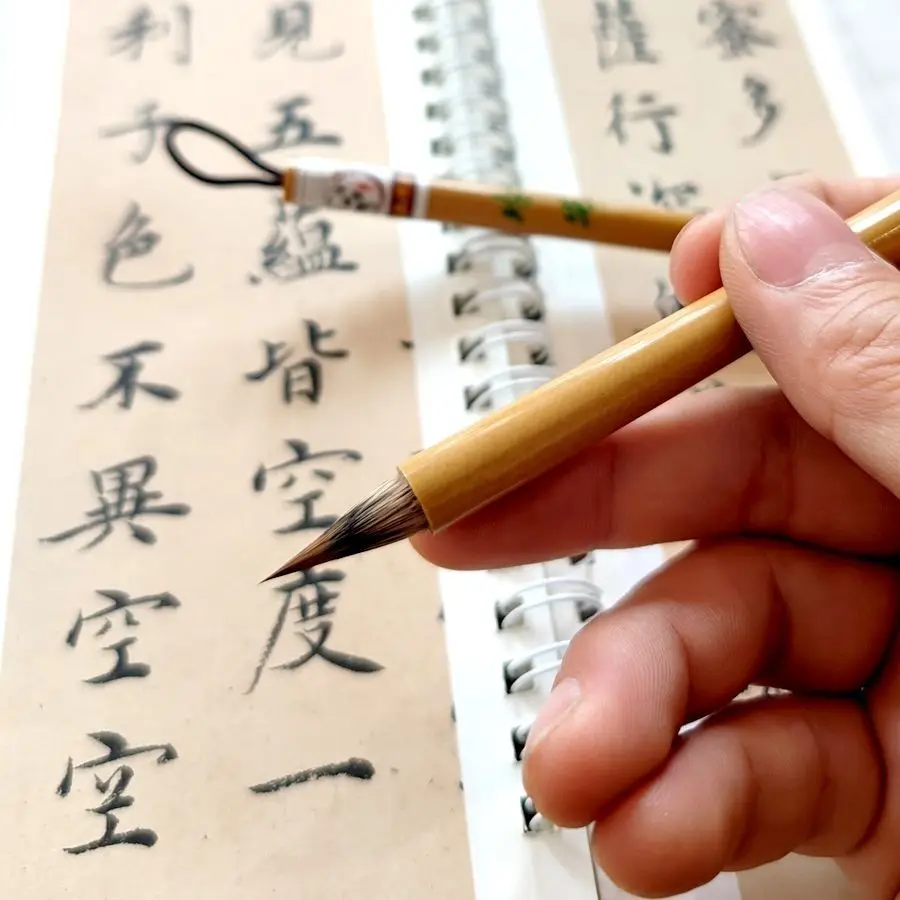 蜜多
薩行深
見五蘊皆空度一
利子色不異空空